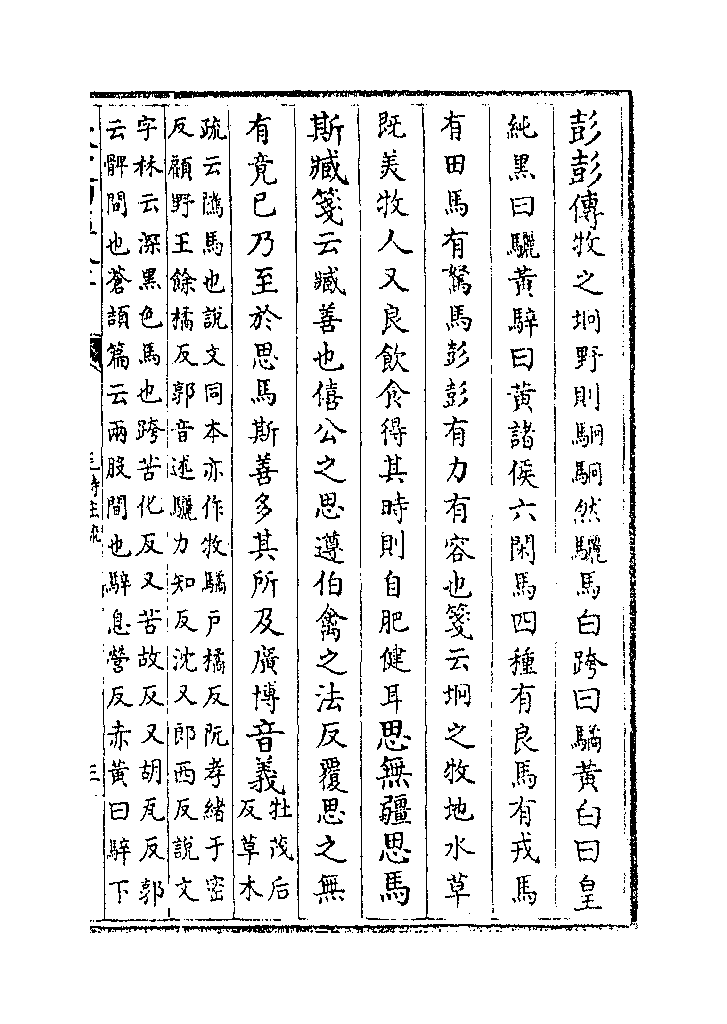 彭彭傳牧之坰野則駉駉然驪馬白跨曰驈黃白曰皇
純黑曰驪黃騂曰黃諸侯六閑馬四種有良馬有戎馬
有田馬有駑馬彭彭有力有容也箋云坰之牧地水草
既美牧人又良飲食得其時則自肥健耳思無疆思馬
斯臧箋云臧善也僖公之思遵伯禽之法反覆思之無
有竟已乃至於思馬斯善多其所及廣博音義牡茂后
反草木
疏云隲馬也說文同本亦作牧驈戶橘反阮孝緒于密
反顧野王餘橘反郭音述驪力知反沈又郎西反說文
字林云深黑色馬也跨苦化反又苦故反又胡瓦反郭
云髀間也蒼頡篇云兩股間也騂息營反赤黃曰騂下